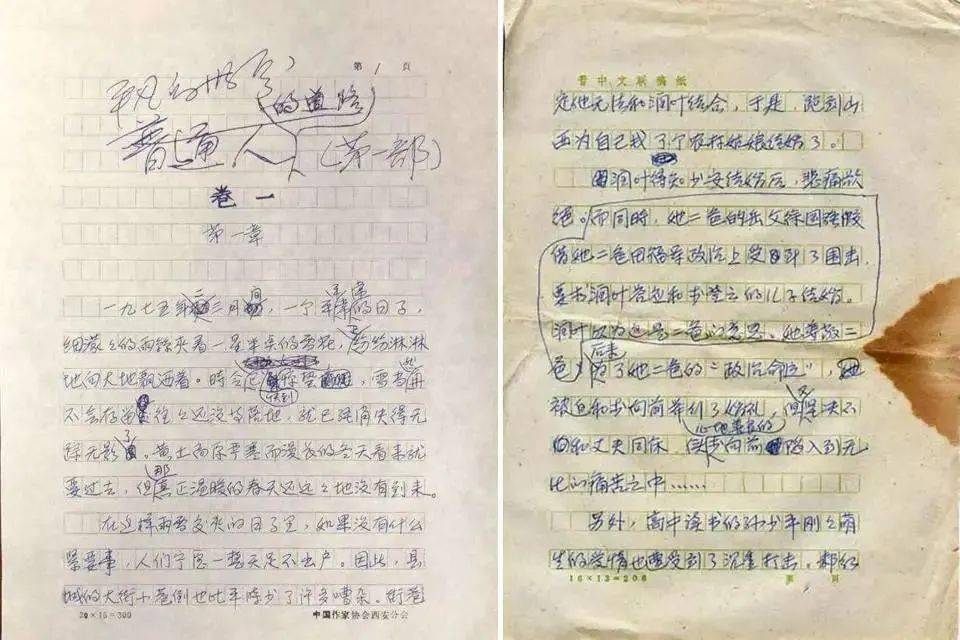 第 1 页
平凡的世界
的道路
普通人
（第一部）
卷一
第一章
一九七五年二三月间，一个平平常常的日子，
细蒙蒙的雨丝夹着一星半点的雪花，正纷纷淋淋
地向大地飘洒着。时令已快到惊蛰，雪当然再
不会存留，往往还没等落地，就已经消失得无
踪无影了。黄土高原严寒而漫长的冬天看来就
要过去，但那真正温暖的春天还远远地没有到来。
在这样雨雪交夹的日子里，如果没有什么
紧要事，人们宁愿一整天足不出户。因此，县
城的大街小巷倒也比平时少了许多嘈杂。街巷
20×15=300
中国作家协会西安分会
晋中文联稿纸
定他无法和润叶结合，于是，跑到山
西为自己找了个农村姑娘结婚了。
润叶得知少安结婚后，悲痛欲
绝。而同时，她二爸的岳父徐国强假
借她二爸田福军政治上受到了围击，
要求润叶答应和李登云的儿子结婚。
润叶以为这是二爸的意思。她尊敬二
爸，后来为了她二爸的“政治命运”，
被迫和李向前举行了婚礼，但又坚决不
和丈夫同床，使心地善良的李向前陷入到无
比的痛苦之中……
另外，高中读书的孙少平刚刚萌
生的爱情也遭受到了沉重打击。郝红
16×13=208
第 页